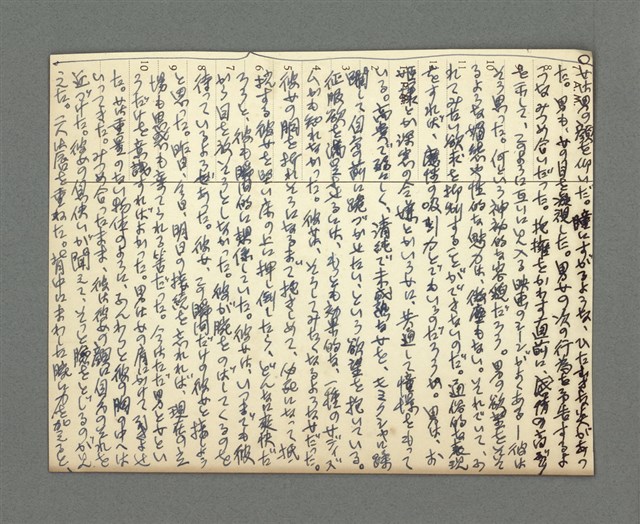 女は男の顔を仰いだ。瞳にすがるような、ひたむきな光があっ
た。男も、女の目を凝視した。男女の次の行為を予告するよ
うなみつめ合いだった。抱擁をかわす直前に、感情の高ぶり
を示して、このように互いに見入る映画のシーンがよくある――彼は
そう思った。何という神秘的な容貌だろう。男の欲望をそそ
るような媚態や性的な魅力は、微塵もない。それでいて、お
れてみたい欲求を抑制することができないのだ。通俗的な表現
をすれば、魔性の吸引力とでもいうのだろうか。男は、お
姫様とか深窓の令嬢とかいう女に、共通して憧憬をもって
いる。高貴で弱々しく、清純で未成熟な女を、モミクシャに蹂
躙して自分の前に跪づかせたい、という欲望を抱いている。
征服欲を満足させるには、もっとも効果的な、一種のサディズ
ムかも知れなかった。彼女は、そうしてみたくなるような女だった。
彼女の胸を折れそうになるまで抱きしめて、必死になって抵
抗する彼女を堅い床の上に押し倒したら、どんなに爽快だ
ろうと、彼も瞬間的に想像していた。彼女は、いつまでも彼
から目を放そうとしなかった。彼が腕をのばしてくるのを
待っているようであった。彼女、この瞬間だけの彼女と抱よう
と思った。昨日、今日、明日の接続を忘れれば、現在の立
場も思惑も棄てられる筈だった。今はただ男と女とい
うだけを意識すればよかった。男は女の肩に手をかけて引きよせ
た。女は重量のない物体のように、ふんわりと彼の胸の中へは
いってきた。みつめ合ったまま、彼は彼女の顔に自分のそれを
近づけた。彼女の息使いが聞えて、そっと瞼をとじるのが見
えた。二人は唇を重ねた。背中にまわした腕に力を加えると、